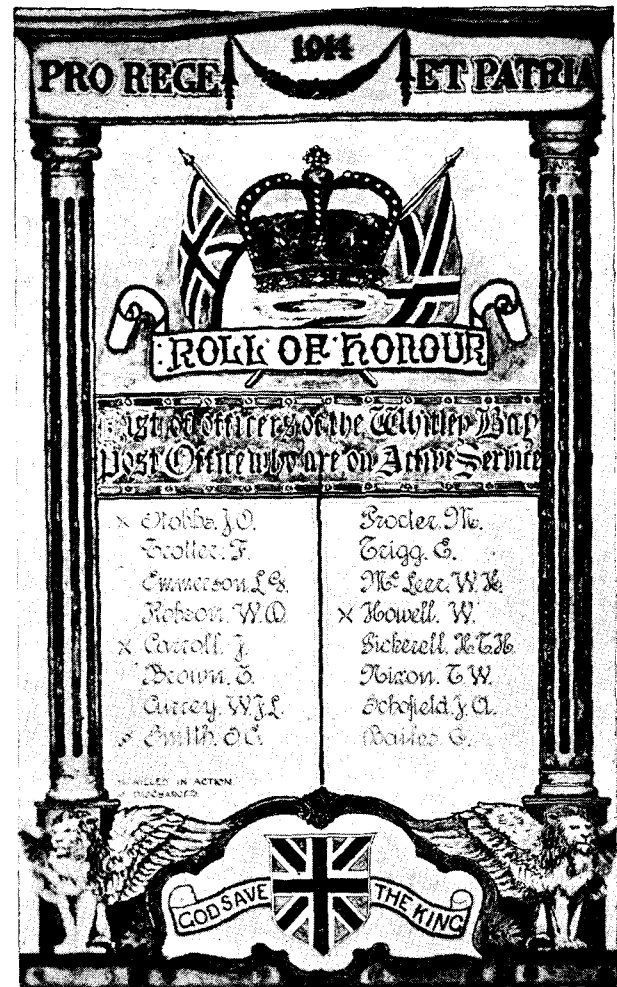 1914
PRO REGE ET PATRIA
ROLL OF HONOUR
List of officers of the Whitley Bay
Post Office who are on Active Service
× Stobbs. J. O.
Trotter. F.
Emmerson. L. G.
Robson. W. O.
× Carroll. J.
Brown.
Currey. W. J. L.
Smith.
Procter. M.
Trigg. E.
Mc Leer. W. H.
× Howell. W.
Pickerell. H. T. H.
Nixon. T. W.
Schofield. J. A.
Bailes.
KILLED IN ACTION
DISCHARGED
GOD SAVE THE KING